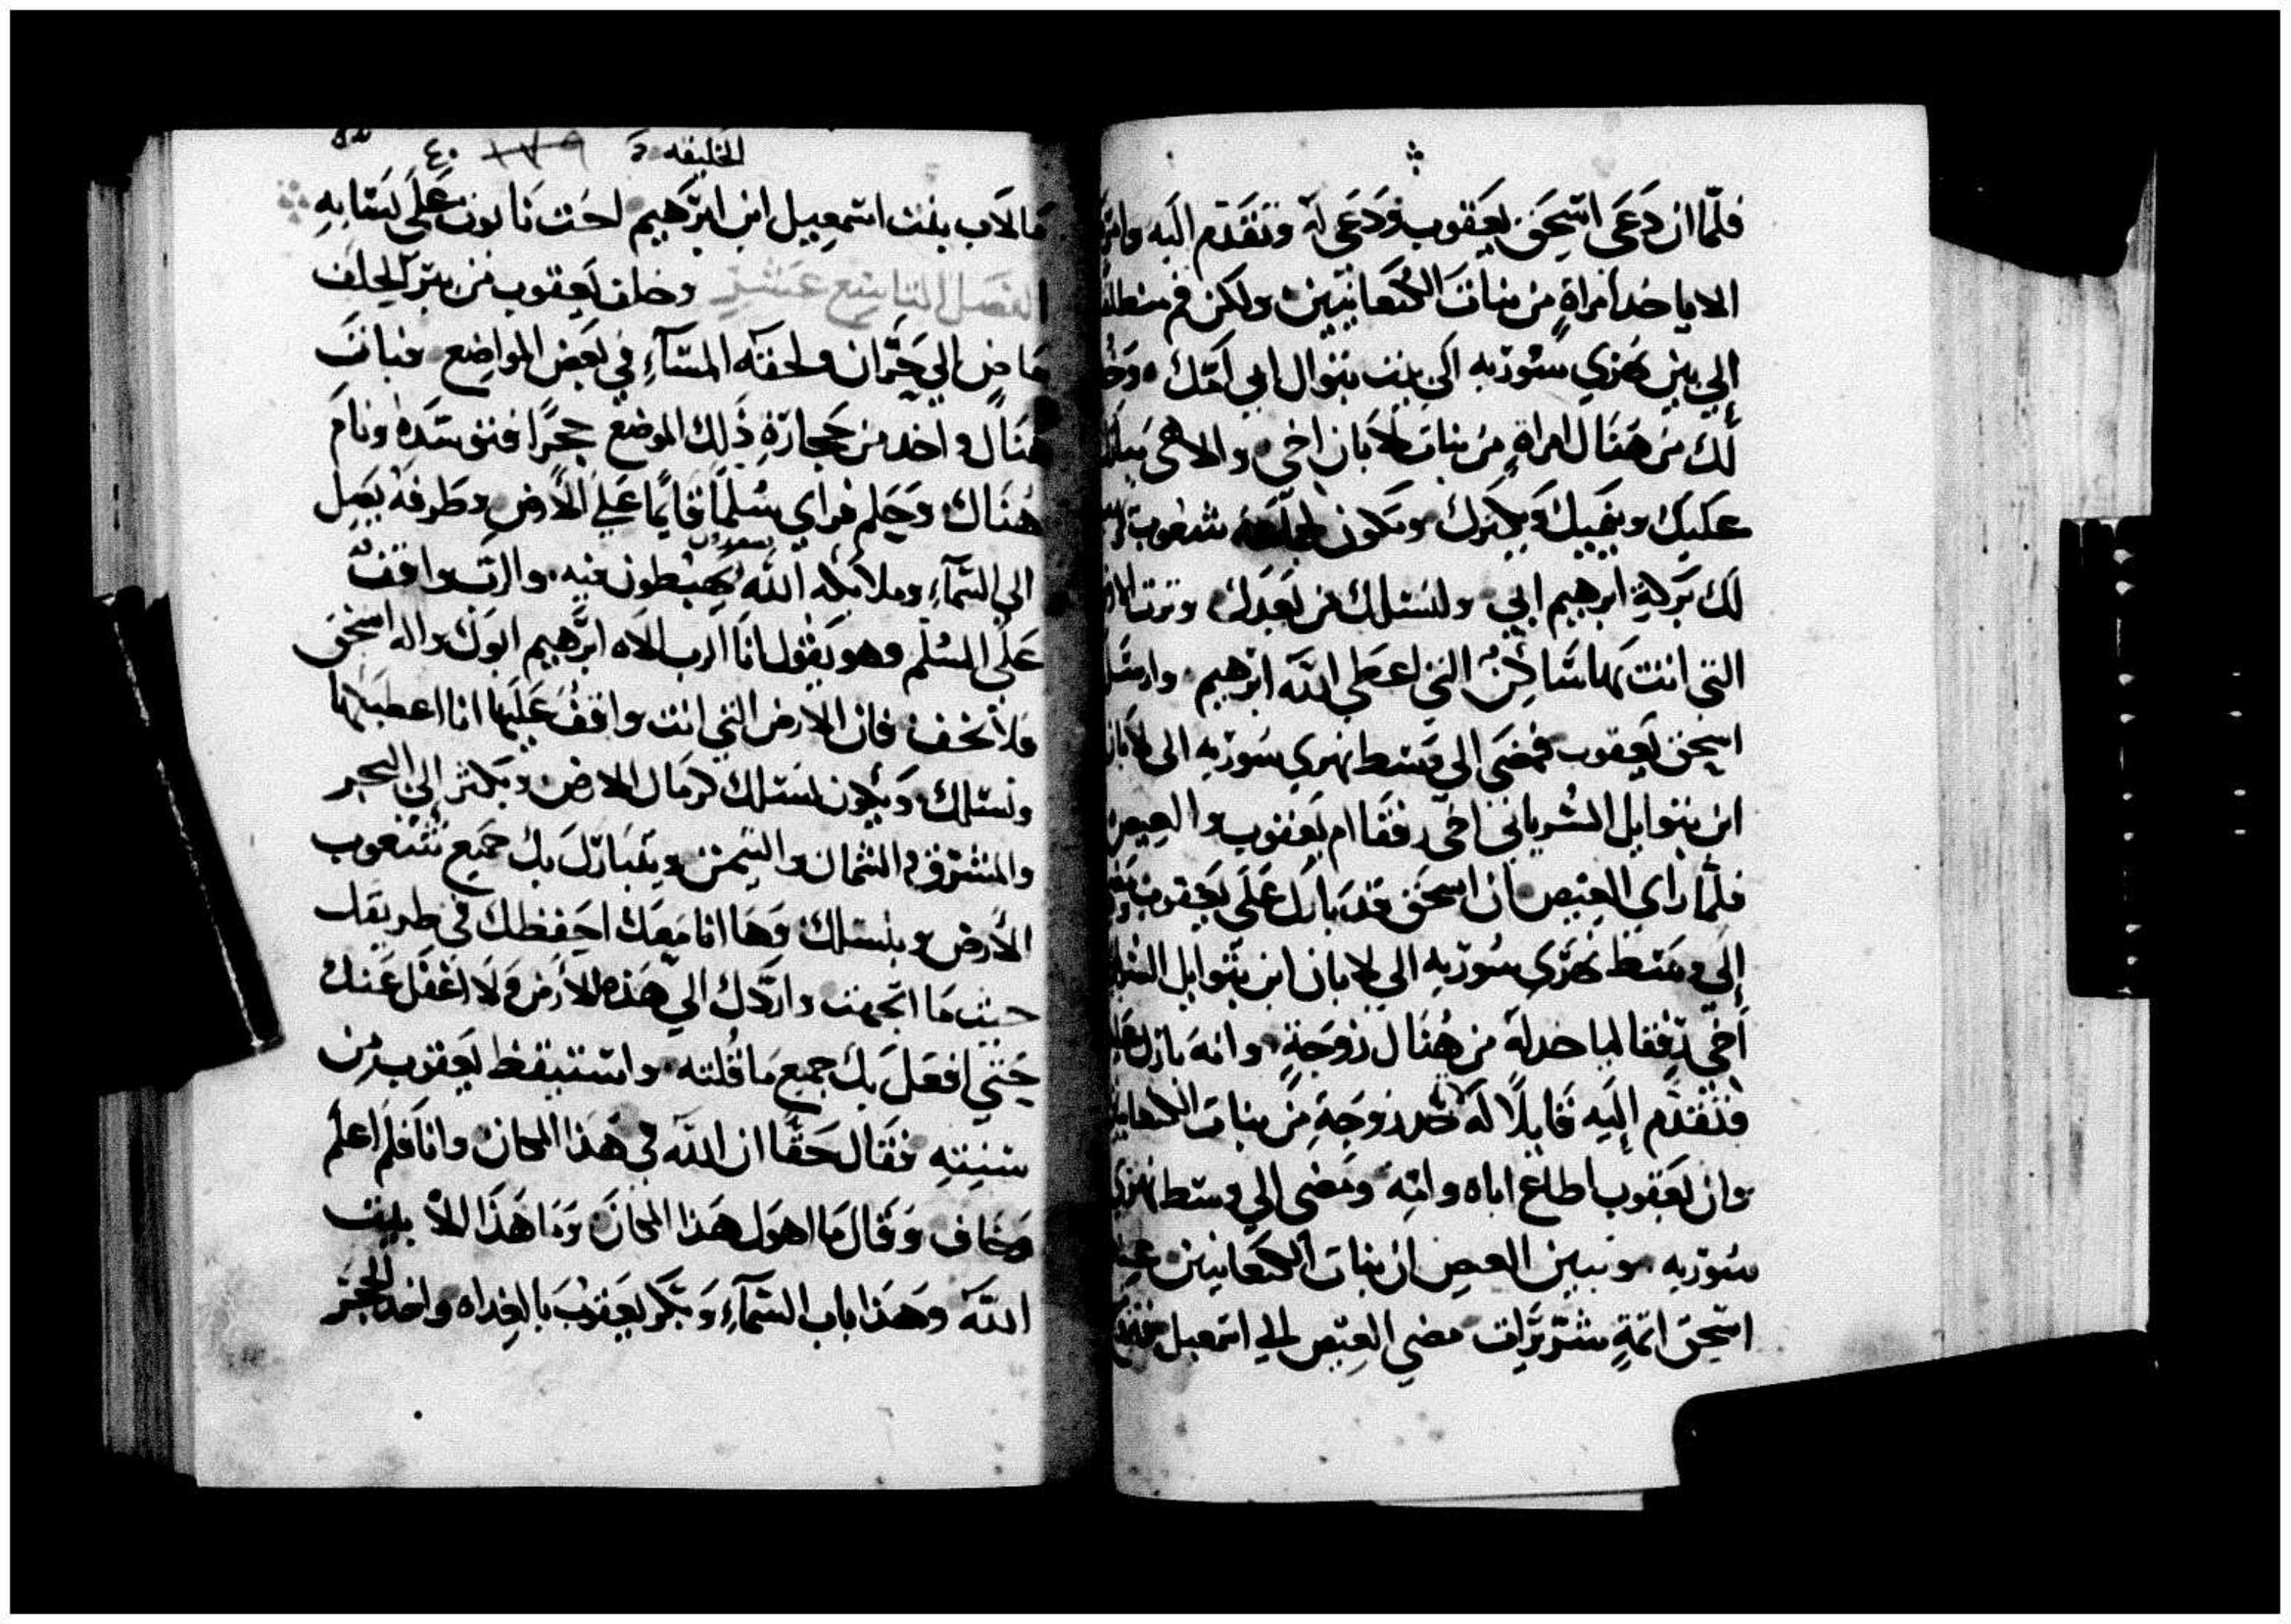 فلمّا ان دَعَى اسحَق يعَقوب وَدَعَى لهَ وتقَدم اليَه
الا ياخد امراةٍ من بنات الكنعانيين ولكن قم منطلقا
إلي بين نهري سُوريه الى بيت بتوال ابي امّك وَخُد
لكَ من هَناك امراةٍ من بنات لابان اخى والاهى يبارك
عَليك وينميك ويكترك وتكون لجماعه شعوب
لك بَركة ابرهيم ابي ولنسلك من بَعدك وترت الارض
التي انت بها سَاكن التي اعطى اللَه ابرهيم وارسَل
اسحق يعقوب فمضَى الي وَسط نهري سوريه الى لابان
ابن بتوايل السُرياني اخى رفقا ام يعقوب والعيص
فلمّا راي العيص ان اسحَق قد بارك عَلَى يَعقوب
إلى وسَط نهرَي سُوريه الي لابان ابن بتوايل
أخى رفقا لياخد لهَ من هُناك زوجَةٍ وانه بارك عليه
وَتقدم إليَه قايلًا لهَ لا تخد زوجَةٍ من بنات
وان يَعقوب اطاع اباه وامّه ومَضى الي وسط نهري
سُوريه وتبين العيص ان بنات الكنعَانيين عند
اسَحق امّهٍ شرّيرَات مضي العيص الي اسمعيل
الخليفه ١٧٩ ٤٠
مَا لاَب بنت اسمعيل ابن ابرَهيم اخت نابوت عَلَى نسَايهِ
الفصَل التاسِع عَشر وخلف يَعقوب من بير الحلف
مَاضٍ الي حَرّان ولحقته المسَآءِ في بَعض المواضِع فبات
هنَاك واخد من حجارَةِ ذلك الموضع حجرًا فتوسّدهُ ونامَ
هُنَاك وَحَلم فراي سُلّمًا قايمًا عَلي الأرض وطَرفهُ يَصِل
الي السّمآءِ وملائكه اللَه يصعدون يهبطون فيه والرب واقفٌ
عَلى السُلم وهو يَقول انَا الرب الاه ابرَهيم ابوك واله اسحَق
فلا تخف فان الارض التي انت واقفُ عَليها انا اعطيَكها
ونسلك وَيكون نسلك كرمَال الارض ويكثر إلي البحر
والمشرق والشمال والتيمن ويتبَارك بك جَميع شعوب
الأرض وبنسلك وَهَا انا مَعك احَفظك في طريقك
حيث مَا اتجهت واردّك الي هَذه الأرض وَلا اغفل عَنك
حَتي افعَل بك جميع مَا قُلته واستيقظ يَعقوب من
سنيتهِ فقال حَقًّا ان اللَه في هَذا المكان وانَا فلم اعلم
وَخاف وَقال مَا اهوَل هَذا المكان وَمَا هَذا الاّ بيت
اللّه وهَذا باب السّمآءِ وَبَكّر يَعقوبَ بالغداه واخد الحجَر